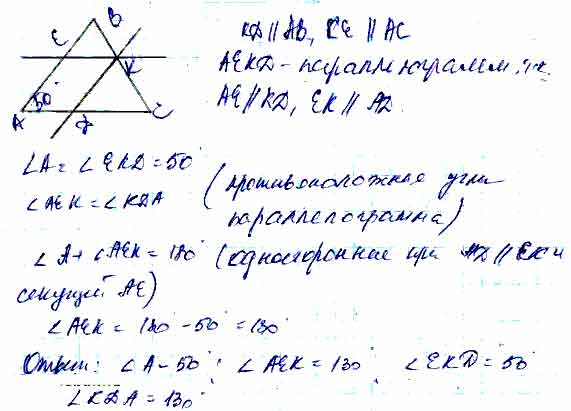 B
E
K
50°
A
D
C
KD || AB, KE || AC
AEKD - параллелограмм, т.к.
AE || KD, EK || AD.
∠A = ∠EKD = 50°
∠AEK = ∠KDA
(противоположные углы
параллелограмма)
∠A + ∠AEK = 180° (односторонние при AD || EK и
секущей AE)
∠AEK = 180 - 50° = 130°
Ответ: ∠A - 50°, ∠AEK = 130, ∠EKD = 50°
∠KDA = 130°